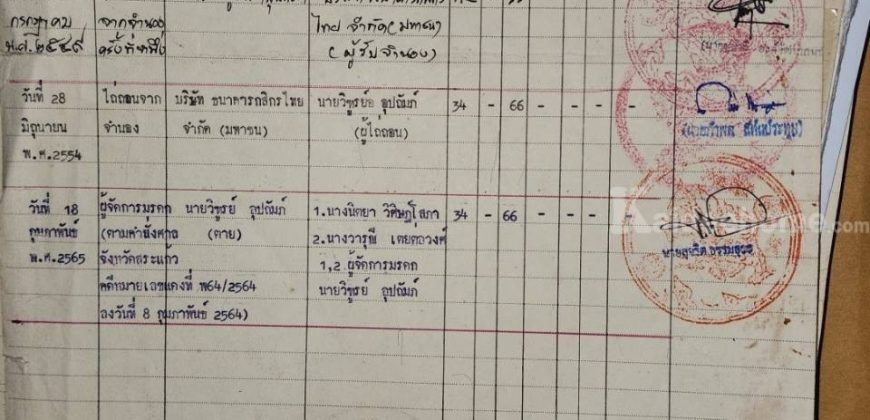 กรกฎาคม จากจำนอง ไทย จำกัด(มหาชน)
พ.ศ.๒๕๔๙ ครั้งที่หนึ่ง (ผู้รับจำนอง)
วันที่ 28 ไถ่ถอนจาก บริษัท ธนาคารกสิกรไทย นายวิฑูรย์ อุปถัมภ์ 34 - 66 - - - -
มิถุนายน จำนอง จำกัด (มหาชน) (ผู้ไถ่ถอน)
พ.ศ.2554
วันที่ 18 ผู้จัดการมรดก นายวิฑูรย์ อุปถัมภ์ 1.นางนิตยา วิศิษฎ์โสภา 34 - 66 - - - -
กุมภาพันธ์ (ตามคำสั่งศาล (ตาย) 2.นางวารุณี
พ.ศ.2565 จังหวัดสระแก้ว 1,2 ผู้จัดการมรดก
คดีหมายเลขแดงที่ พ64/2564 นายวิฑูรย์ อุปถัมภ์
ลงวันที่ 8 กุมภาพันธ์ 2564)